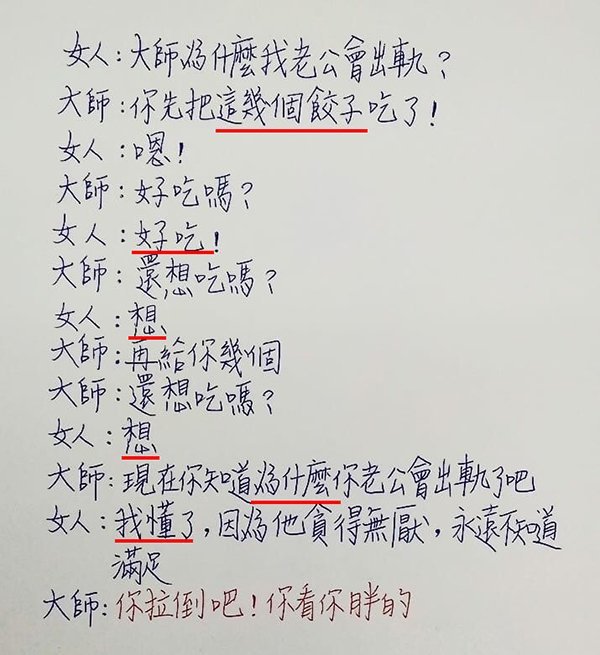 女人:大師為什麼我老公會出軌?
大師:你先把這幾個餃子吃了!
女人:嗯!
大師:好吃嗎?
女人:好吃!
大師:還想吃嗎?
女人:想
大師:再給你幾個
大師:還想吃嗎?
女人:想
大師:現在你知道為什麼你老公會出軌了吧
女人:我懂了,因為他貪得無厭,永遠不知道
滿足
大師:你拉倒吧!你看你胖的